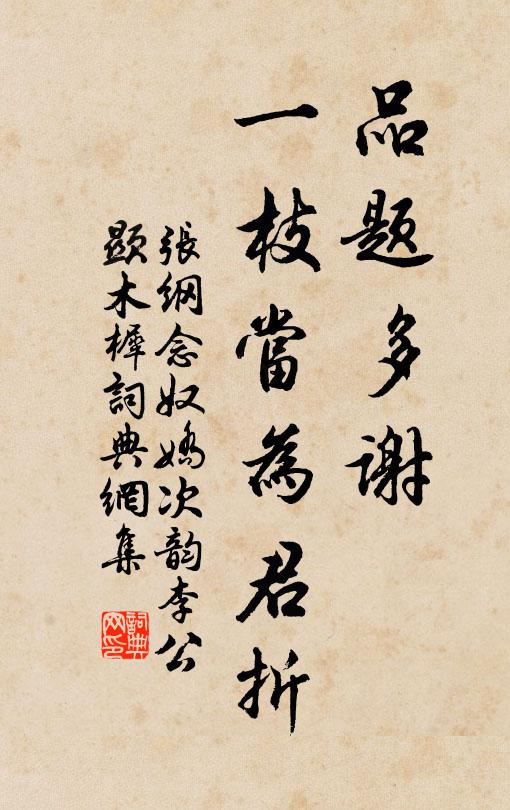 品题多谢
一枝當為君折
張綱念奴嬌次韵李公
顯木樨詞典網集
詞典网印